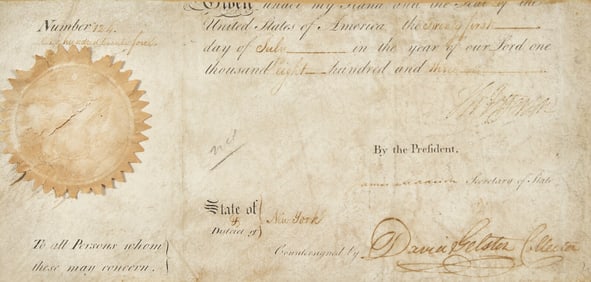 Number 124.
Given under my Hand and the Seal of the
United States of America, the twenty first
day of July in the year of our Lord one
thousand eight hundred and
Th Jefferson
By the President,
James Madison Secretary of State
State of
District of
New York
Countersigned by David Gelston Collector
To all Persons whom
these may concern.